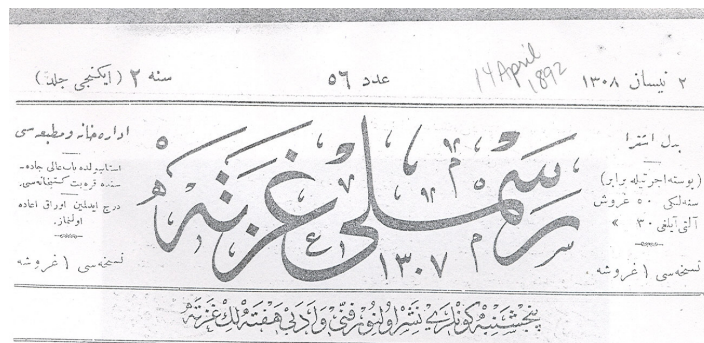 ٢ نيسان ١٣٠٨
14 April 1892
عدد ٥٦
سنه ٢ (ايكنجى جلد)
بدل اشترا
(پوسته اجرتيله برابر)
سنه‌لكى ٥٠ غروش
آلتى آيلغى ٣٠ »
نسخه‌سى ١ غروشه .
رسملى غزته
١٣٠٧
اداره‌خانه و مطبعه‌سى
استانبولده باب عالى جاده‌-
سنده قره‌بت كتبخانه‌سى.
درج ايدلين اوراق اعاده
اولنماز.
نسخه‌سى ١ غروشه
پنجشنبه كونلرى نشر اولنور فنى و ادبى هفته‌لك غزته